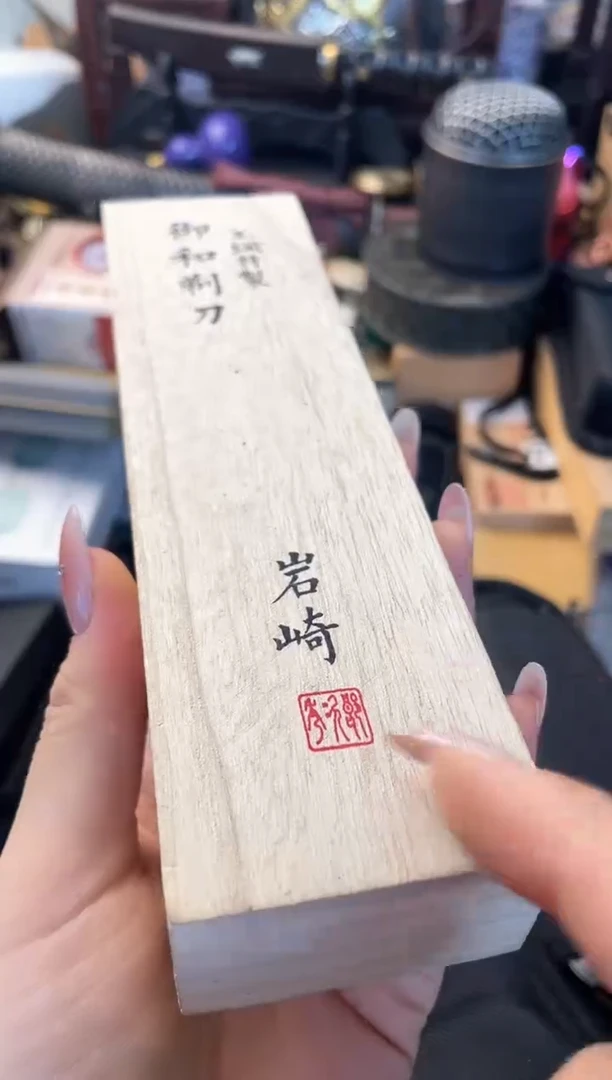 玉鋼特製
御和剃刀
岩崎